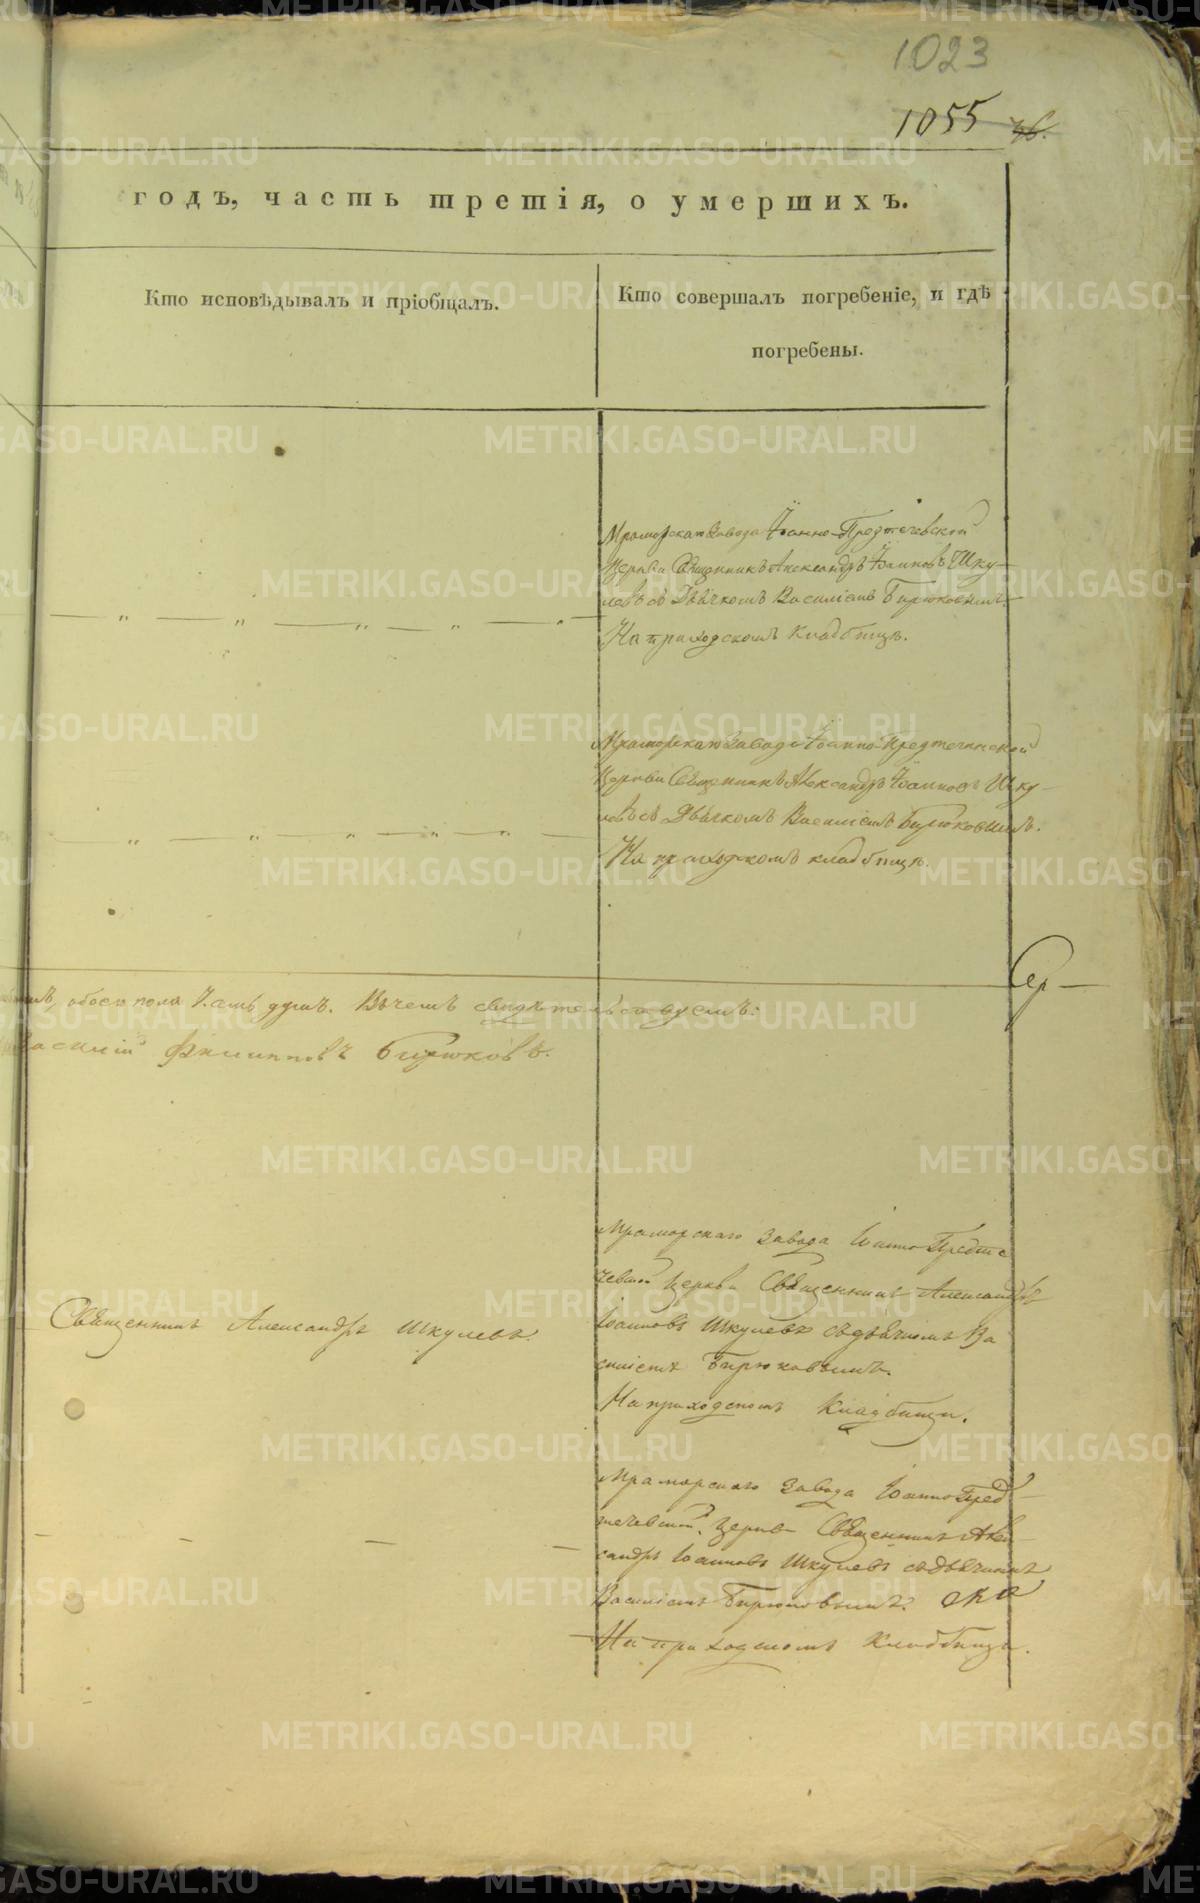 1023
1055
годъ, часть третія, о умершихъ.
Кто исповѣдывалъ и пріобщалъ.
Кто совершалъ погребеніе, и гдѣ
погребены.
Мраморскаго Завода Іоанно-Предтечевской
Церкви Священникъ Александръ Іоанновъ Шку-
левъ съ Дьячкомъ Василіемъ Бирюковымъ.
На приходскомъ кладбищѣ.
Мраморскаго Завода Іоанно-Предтечинской
Церкви Священникъ Александръ Іоанновъ Шку-
левъ съ Дьячкомъ Василіемъ Бирюковымъ.
На приходскомъ кладбищѣ.
обоего пола душъ. Въ чемъ свидѣтельствуемъ:
Василій Филипповъ Бирюковъ.
Священникъ Александръ Шкулевъ.
Мраморскаго Завода Іоанно Предте
чевской Церкви Священникъ Александръ
Іоанновъ Шкулевъ съ дьячкомъ Ва
силіемъ Бирюковымъ.
На приходскомъ Кладбищи.
Мраморскаго Завода Іоанно Пред-
течевской Церкви Священникъ Алек-
сандръ Іоанновъ Шкулевъ съ дьячкомъ
Василіемъ Бирюковымъ.
На приходскомъ Кладбищи.
METRIKI.GASO-URAL.RU